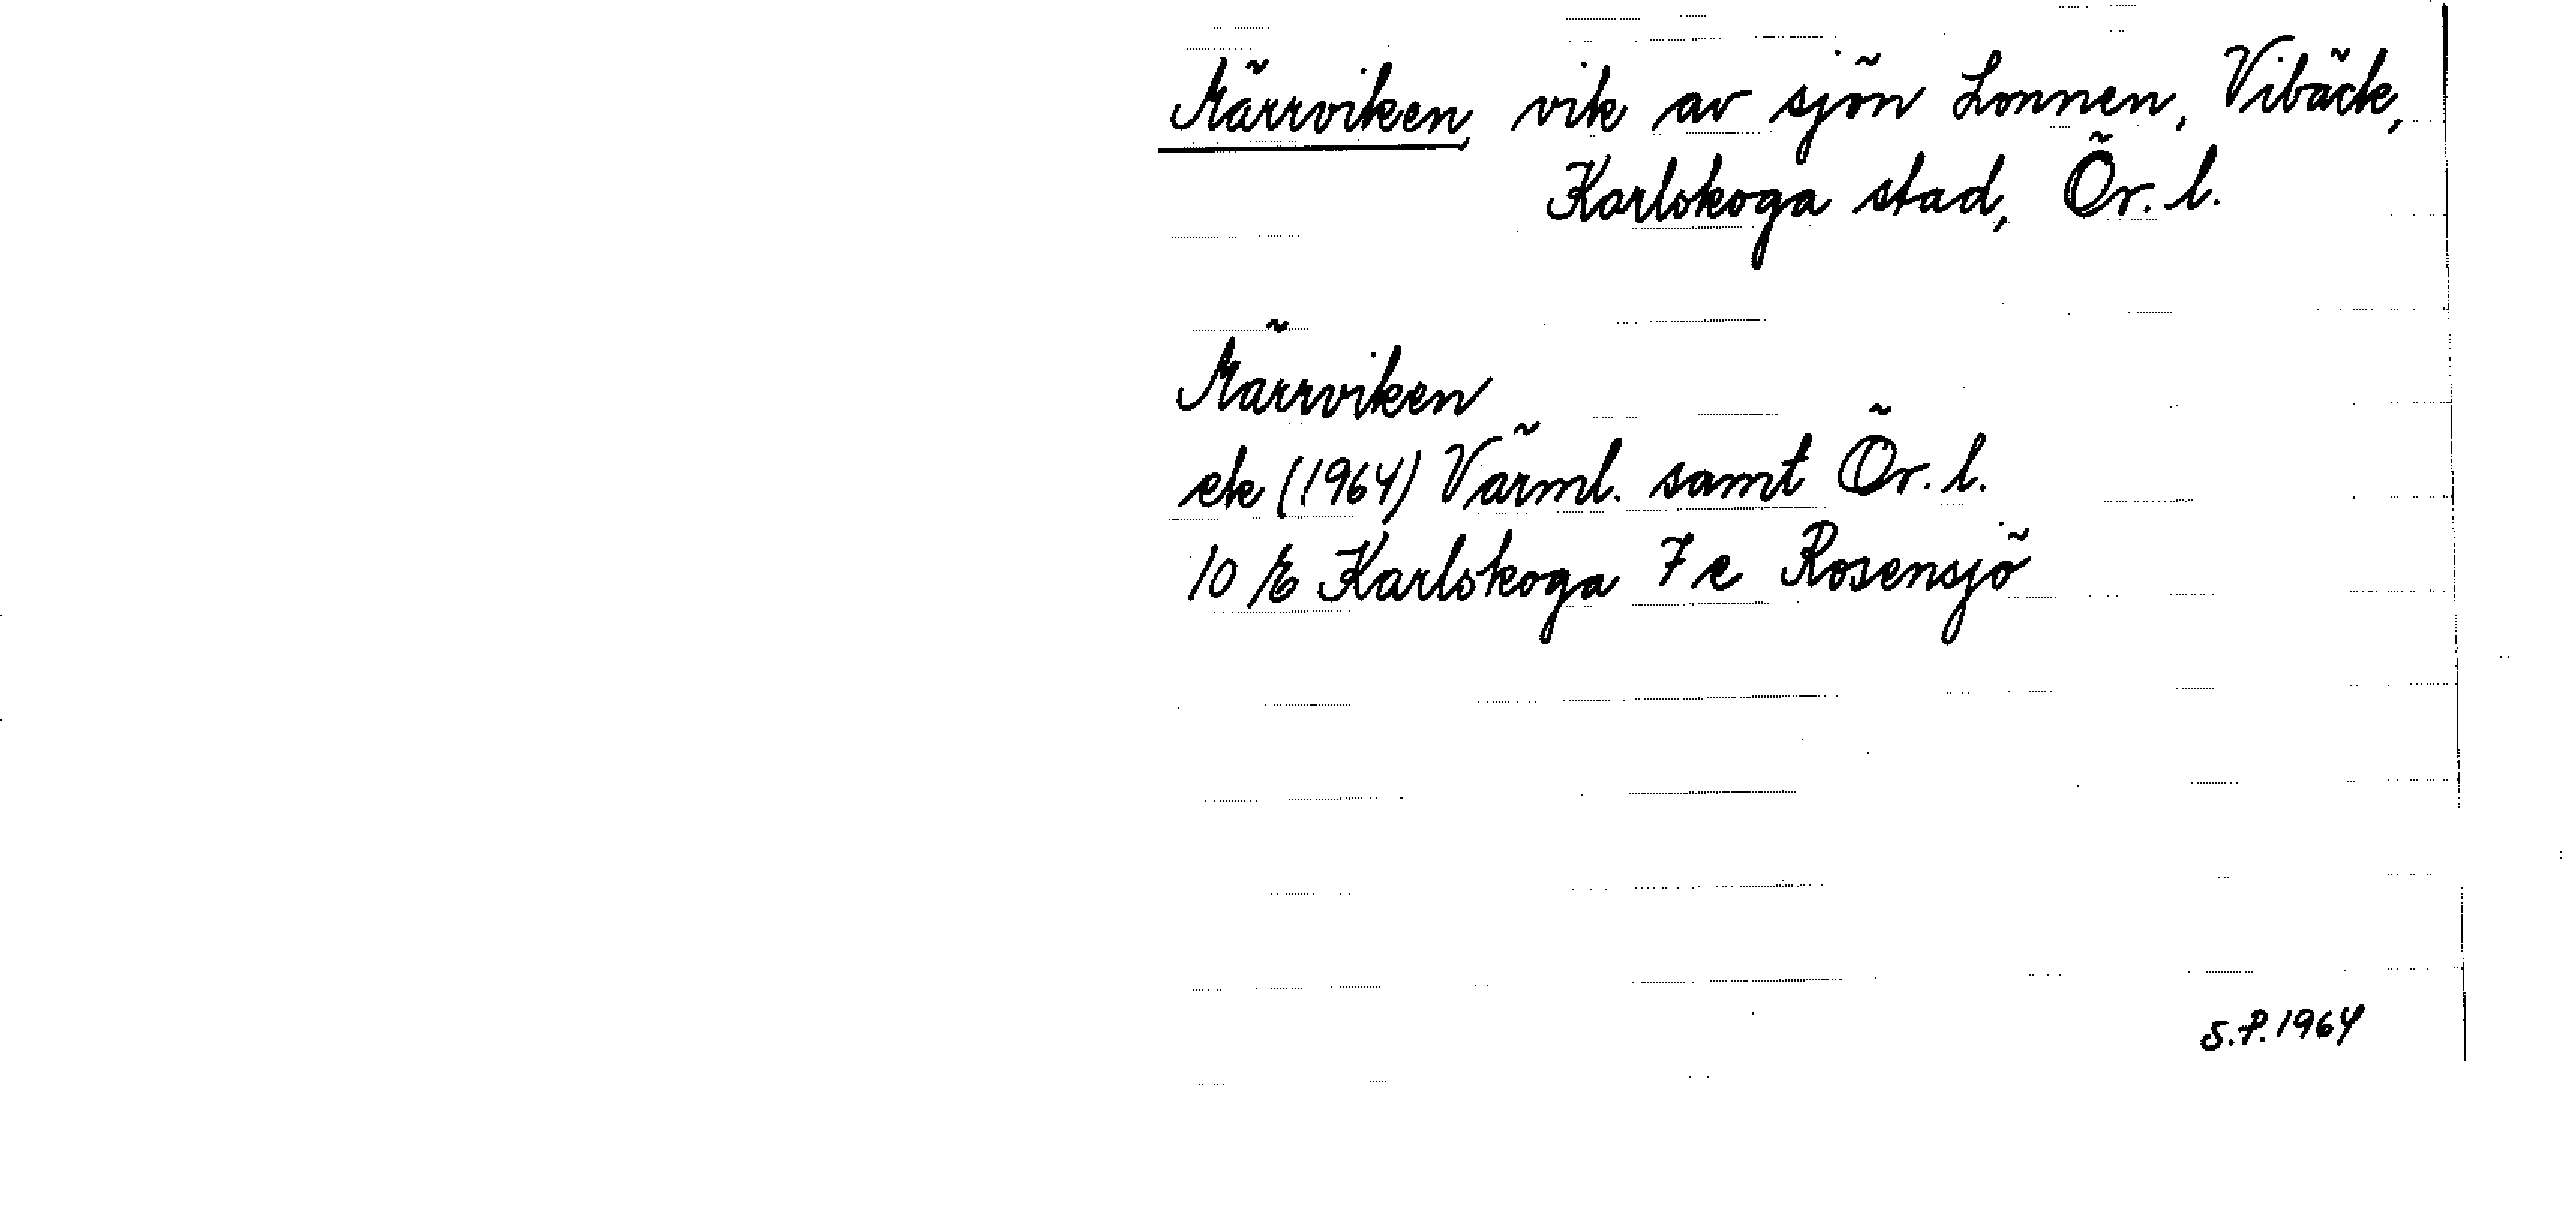 Märrviken, vik av sjön Lonnen, Vibäck,
Karlskoga stad, Ör. l.
Märrviken
ek (1964) Värml. samt Ör. l.
10 E Karlskoga 7 e Rosensjö
S.P. 1964